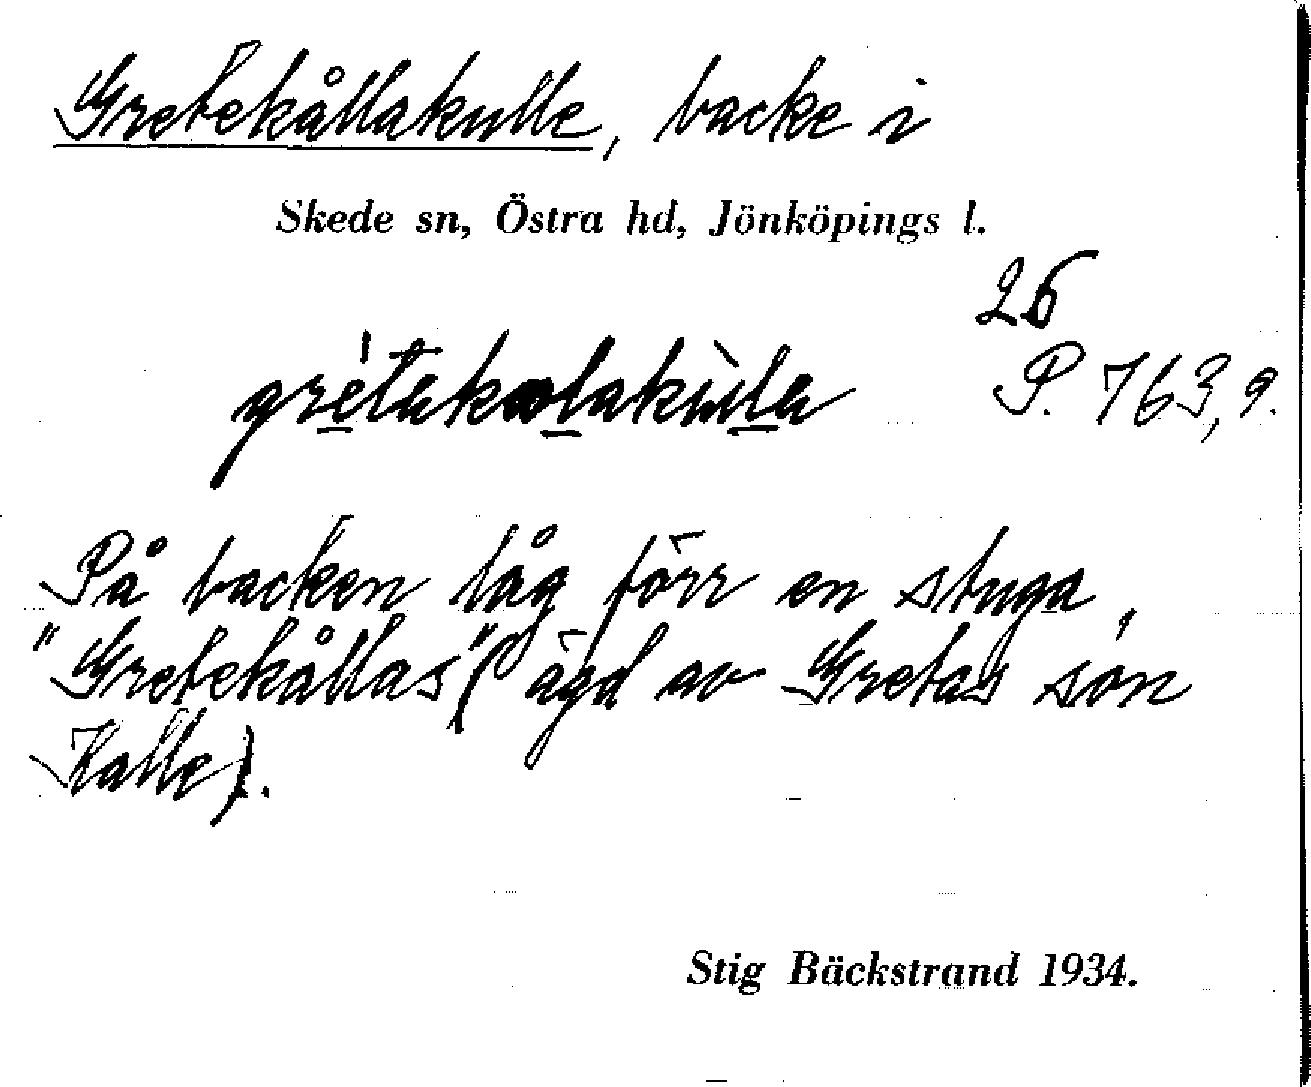 Gretekållakulle, backe i
Skede sn, Östra hd, Jönköpings l.
26
P. 763,9.
På backen låg förr en stuga,
"Gretekållas" (ägd av Gretas son
Kalle).
Stig Bäckstrand 1934.